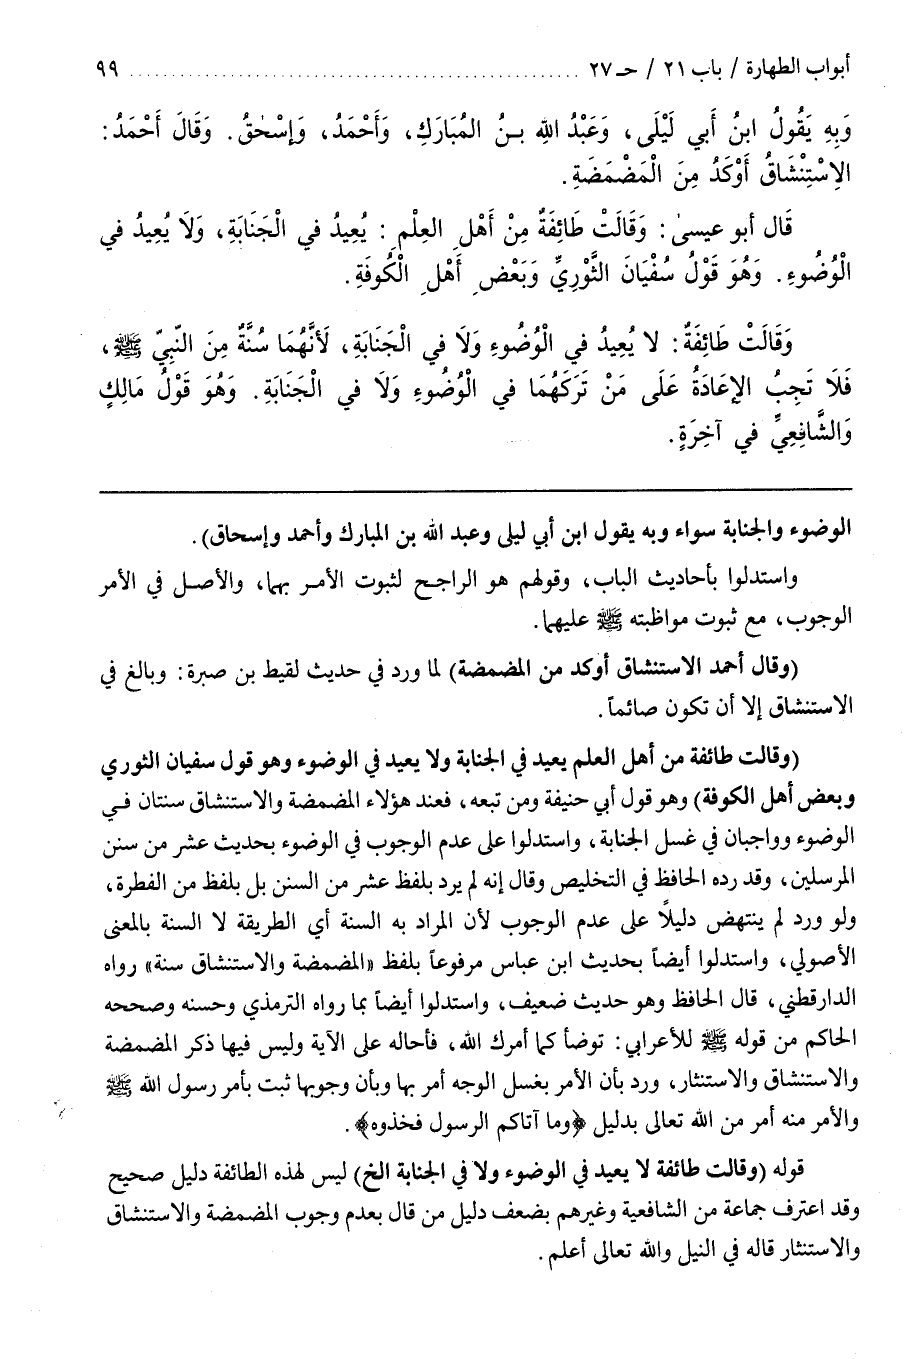 أبواب الطهارة / باب ٢١ / حـ ٢٧ ............................................................ ٩٩
وَبِهِ يَقُولُ ابنُ أَبي لَيْلَى، وَعَبْدُ اللهِ بـنُ المُبَارَكِ، وَأَحْمَدُ، وَإِسْحٰقُ. وَقَالَ أَحْمَدُ:
الاِسْتِنْشَاقُ أَوْكَدُ مِنَ الْمَضْمَضَةِ.
قَال أبو عيسىٰ: وَقَالَتْ طَائِفَةٌ مِنْ أَهْلِ العِلْمِ: يُعِيدُ في الْجَنَابَةِ، وَلَا يُعِيدُ في
الْوُضُوءِ. وَهُوَ قَوْلُ سُفْيَانَ الثَّوْرِيِّ وَبَعْضِ أَهْلِ الْكُوفَةِ.
وَقَالَتْ طَائِفَةٌ: لا يُعِيدُ في الْوُضُوءِ وَلَا في الْجَنَابَةِ، لَأنَّهُمَا سُنَّةٌ مِنَ النَّبِيِّ ﷺ،
فَلَا تَجِبُ الإعَادَةُ عَلَى مَنْ تَرَكَهُمَا في الْوُضُوءِ وَلَا في الْجَنَابَةِ. وَهُوَ قَوْلُ مَالِكٍ
وَالشَّافِعِيِّ في آخِرَةٍ.
الوضوء والجنابة سواء وبه يقول ابن أبي ليلى وعبد الله بن المبارك وأحمد وإسحاق).
واستدلوا بأحاديث الباب، وقولهم هو الراجح لثبوت الأمـر بهما، والأصـل في الأمر
الوجوب، مع ثبوت مواظبته ﷺ عليهما.
(وقال أحمد الاستنشاق أوكد من المضمضة) لما ورد في حديث لقيط بن صبرة: وبالغ في
الاستنشاق إلا أن تكون صائماً.
(وقالت طائفة من أهل العلم يعيد في الجنابة ولا يعيد في الوضوء وهو قول سفيان الثوري
وبعض أهل الكوفة) وهو قول أبي حنيفة ومن تبعه، فعند هؤلاء المضمضة والاستنشاق سنتان في
الوضوء وواجبان في غسل الجنابة، واستدلوا على عدم الوجوب في الوضوء بحديث عشر من سنن
المرسلين، وقد رده الحافظ في التخليص وقال إنه لم يرد بلفظ عشر من السنن بل بلفظ من الفطرة،
ولو ورد لم ينتهض دليلاً على عدم الوجوب لأن المراد به السنة أي الطريقة لا السنة بالمعنى
الأصولي، واستدلوا أيضاً بحديث ابن عباس مرفوعاً بلفظ «المضمضة والاستنشاق سنة» رواه
الدارقطني، قال الحافظ وهو حديث ضعيف، واستدلوا أيضاً بما رواه الترمذي وحسنه وصححه
الحاكم من قوله ﷺ للأعرابي: توضأ كما أمرك الله، فأحاله على الآية وليس فيها ذكر المضمضة
والاستنشاق والاستنثار، ورد بأن الأمر بغسل الوجه أمر بها وبأن وجوبها ثبت بأمر رسول الله ﷺ
والأمر منه أمر من الله تعالى بدليل ﴿وما آتاكم الرسول فخذوه﴾.
قوله (وقالت طائفة لا يعيد في الوضوء ولا في الجنابة الخ) ليس لهذه الطائفة دليل صحيح
وقد اعترف جماعة من الشافعية وغيرهم بضعف دليل من قال بعدم وجوب المضمضة والاستنشاق
والاستنثار قاله في النيل والله تعالى أعلم.